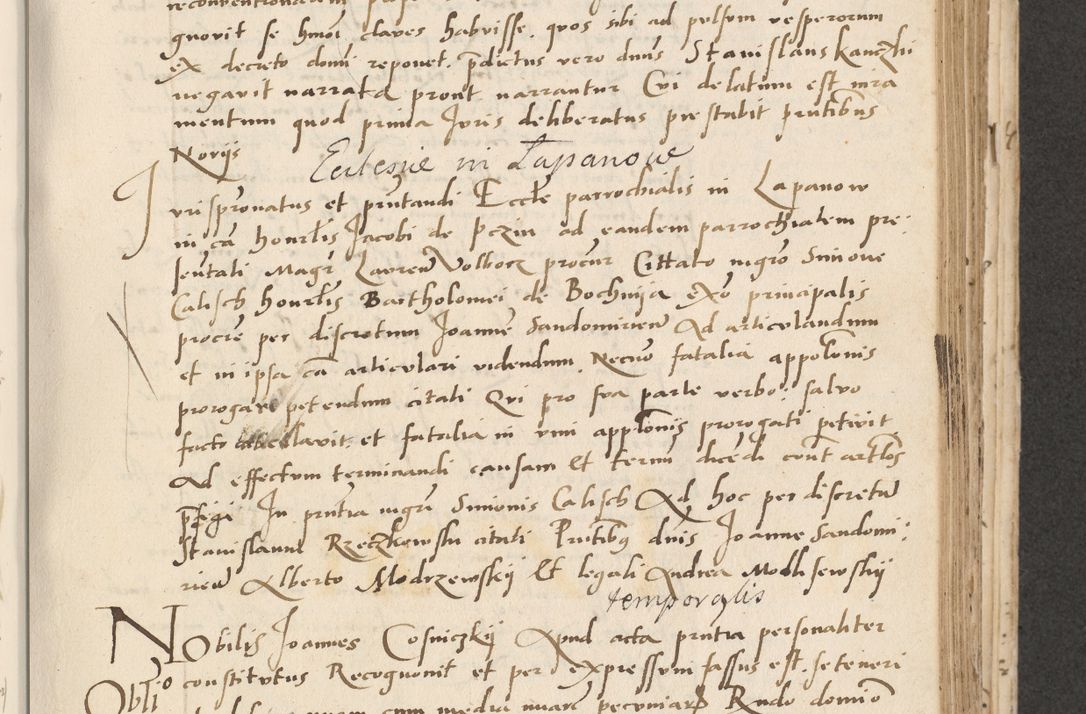 gnovit se hmoi claves habuisse, quos sibi ad pulsum vesperorum
ex decreto domi reponet. pdictus vero dnus Stanislaus Kanczki
negavit narrata prout narrantur Cui delatum est iura
mentum quod prima Juris deliberatus prestabit pntibus
Noriis
Ecclesie in Lapanow
Jurispronatus et pntandi Eccle parrochialis in Lapanow
in ca honrlis Jacobi de Pczin ad eandem parrochialem pre
sentati Magr Lauren Volborz procur Cittato nigro Simone
Calisch honrlis Bartholomei de Bochnija exo principalis
procre per discretum Joanne Sandomirien Ad articulandum
et in ipsa ca articulari videndum Necno fatalia appolonis
prorogare petendum citati Qui pro sua parte verbo salvo
facto et fatalia in vim applonis prorogati petivit
Ad effectum terminandi causam Et termi dicedi cont artlos
pfigi In pntia nigri Simonis Calisch Ad hoc per discretu
Stanislaum Rzeczkowski citati Pntibus dnis Joanne Sandomi
rien Alberto Modrzewskij Et legali Andrea Modlisewskij
temporalis
Nobilis Joannes Cosniczkij Apud acta pntia personaliter
Obllo constitutus Recognovit et per expressum fassus est, se teneri